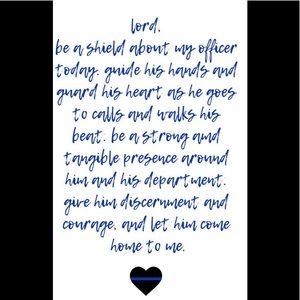 lord,
be a shield about my officer
today. guide his hands and
guard his heart as he goes
to calls and walks his
beat. be a strong amd
tangible presence around
him and his department.
give him discernment and
courage, and let him come
home to me.